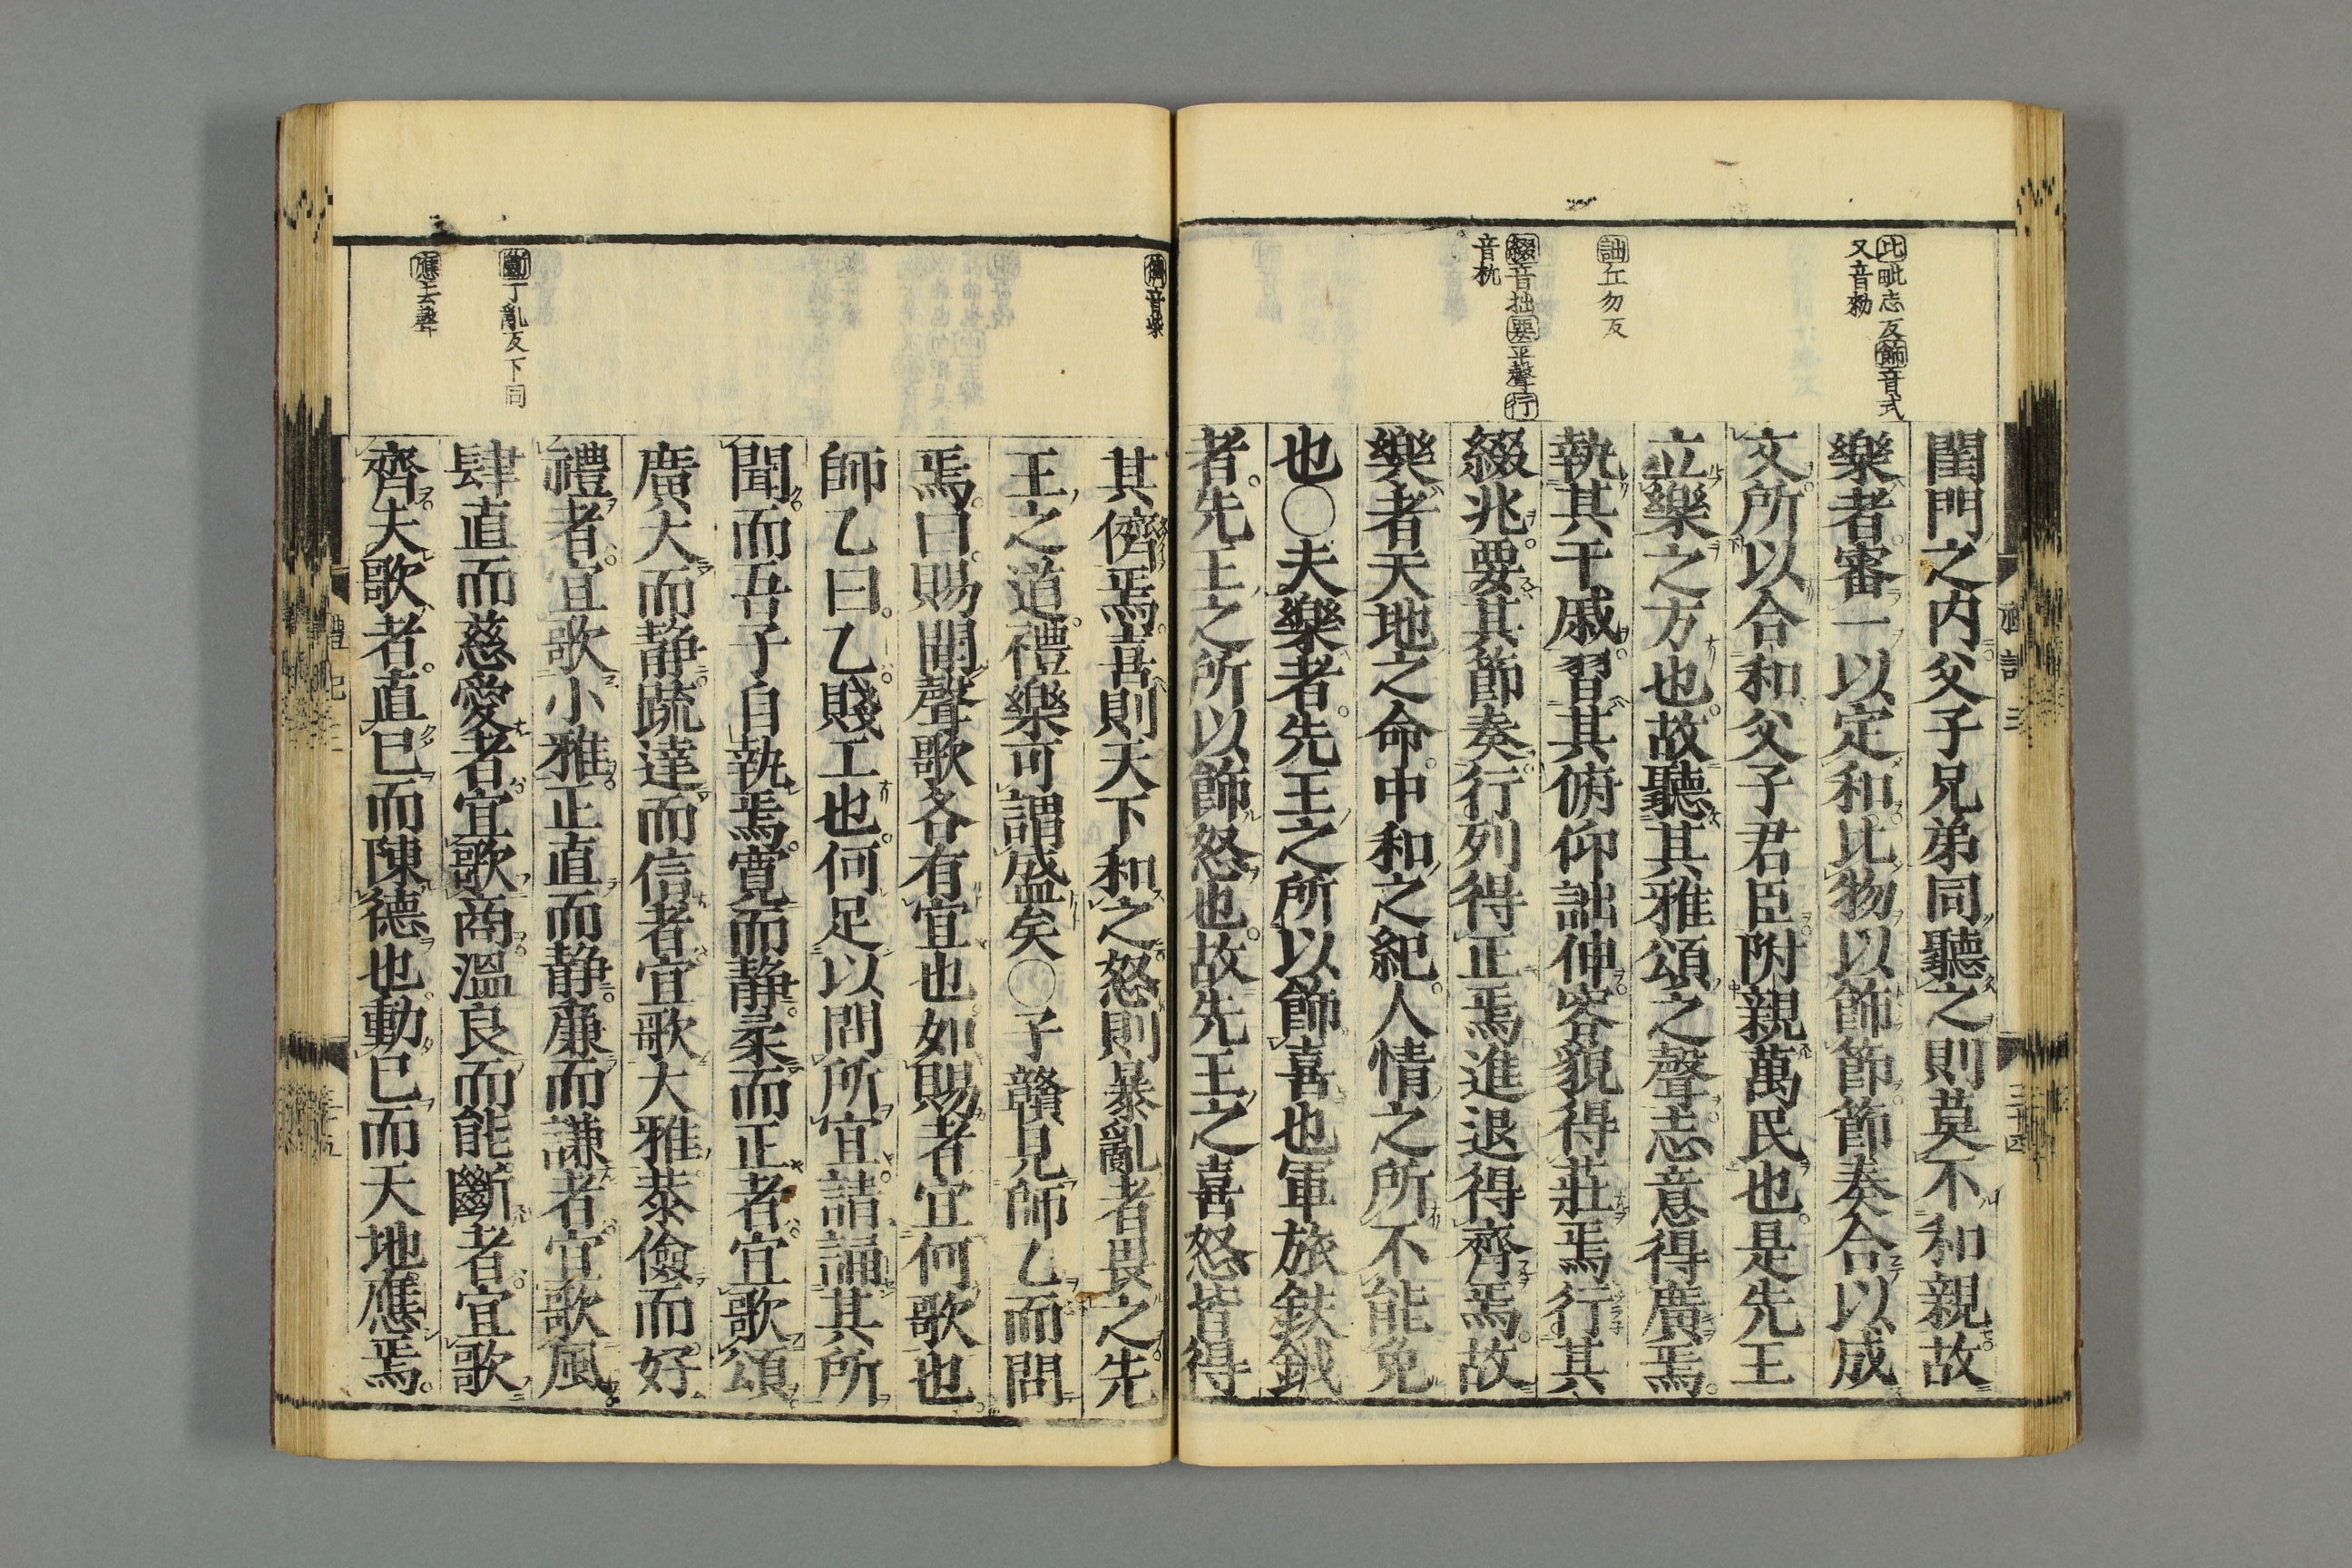 比毗志反飾音式
又音勑
詘丘勿反
綴音拙要平聲行
音杭
閨門之内父子兄弟同聽之則莫不和親故
樂者審一以定和比物以飾節節奏合以成
文所以合和父子君臣附親萬民也是先王
立樂之方也故聽其雅頌之聲志意得廣焉
執其干戚習其俯仰詘伸容貌得莊焉行其
綴兆要其節奏行列得正焉進退得齊焉故
樂者天地之命中和之紀人情之所不能免
也○夫樂者先王之所以飾喜也軍旅鈇鉞
者先王之所以飾怒也故先王之喜怒皆得
儕音柴
斷丁亂反下同
應去聲
其儕焉喜則天下和之怒則暴亂者畏之先
王之道禮樂可謂盛矣○子贛見師乙而問
焉曰賜聞聲歌各有宜也如賜者宜何歌也
師乙曰乙賤工也何足以問所宜請誦其所
聞而吾子自執焉寬而静柔而正者宜歌頌
廣大而静疏達而信者宜歌大雅恭儉而好
禮者宜歌小雅正直而静廉而謙者宜歌風
肆直而慈愛者宜歌商溫良而能斷者宜歌
齊夫歌者直已而陳德也動已而天地應焉